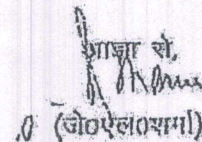 आज्ञा से,
(जे०एल०शर्मा)